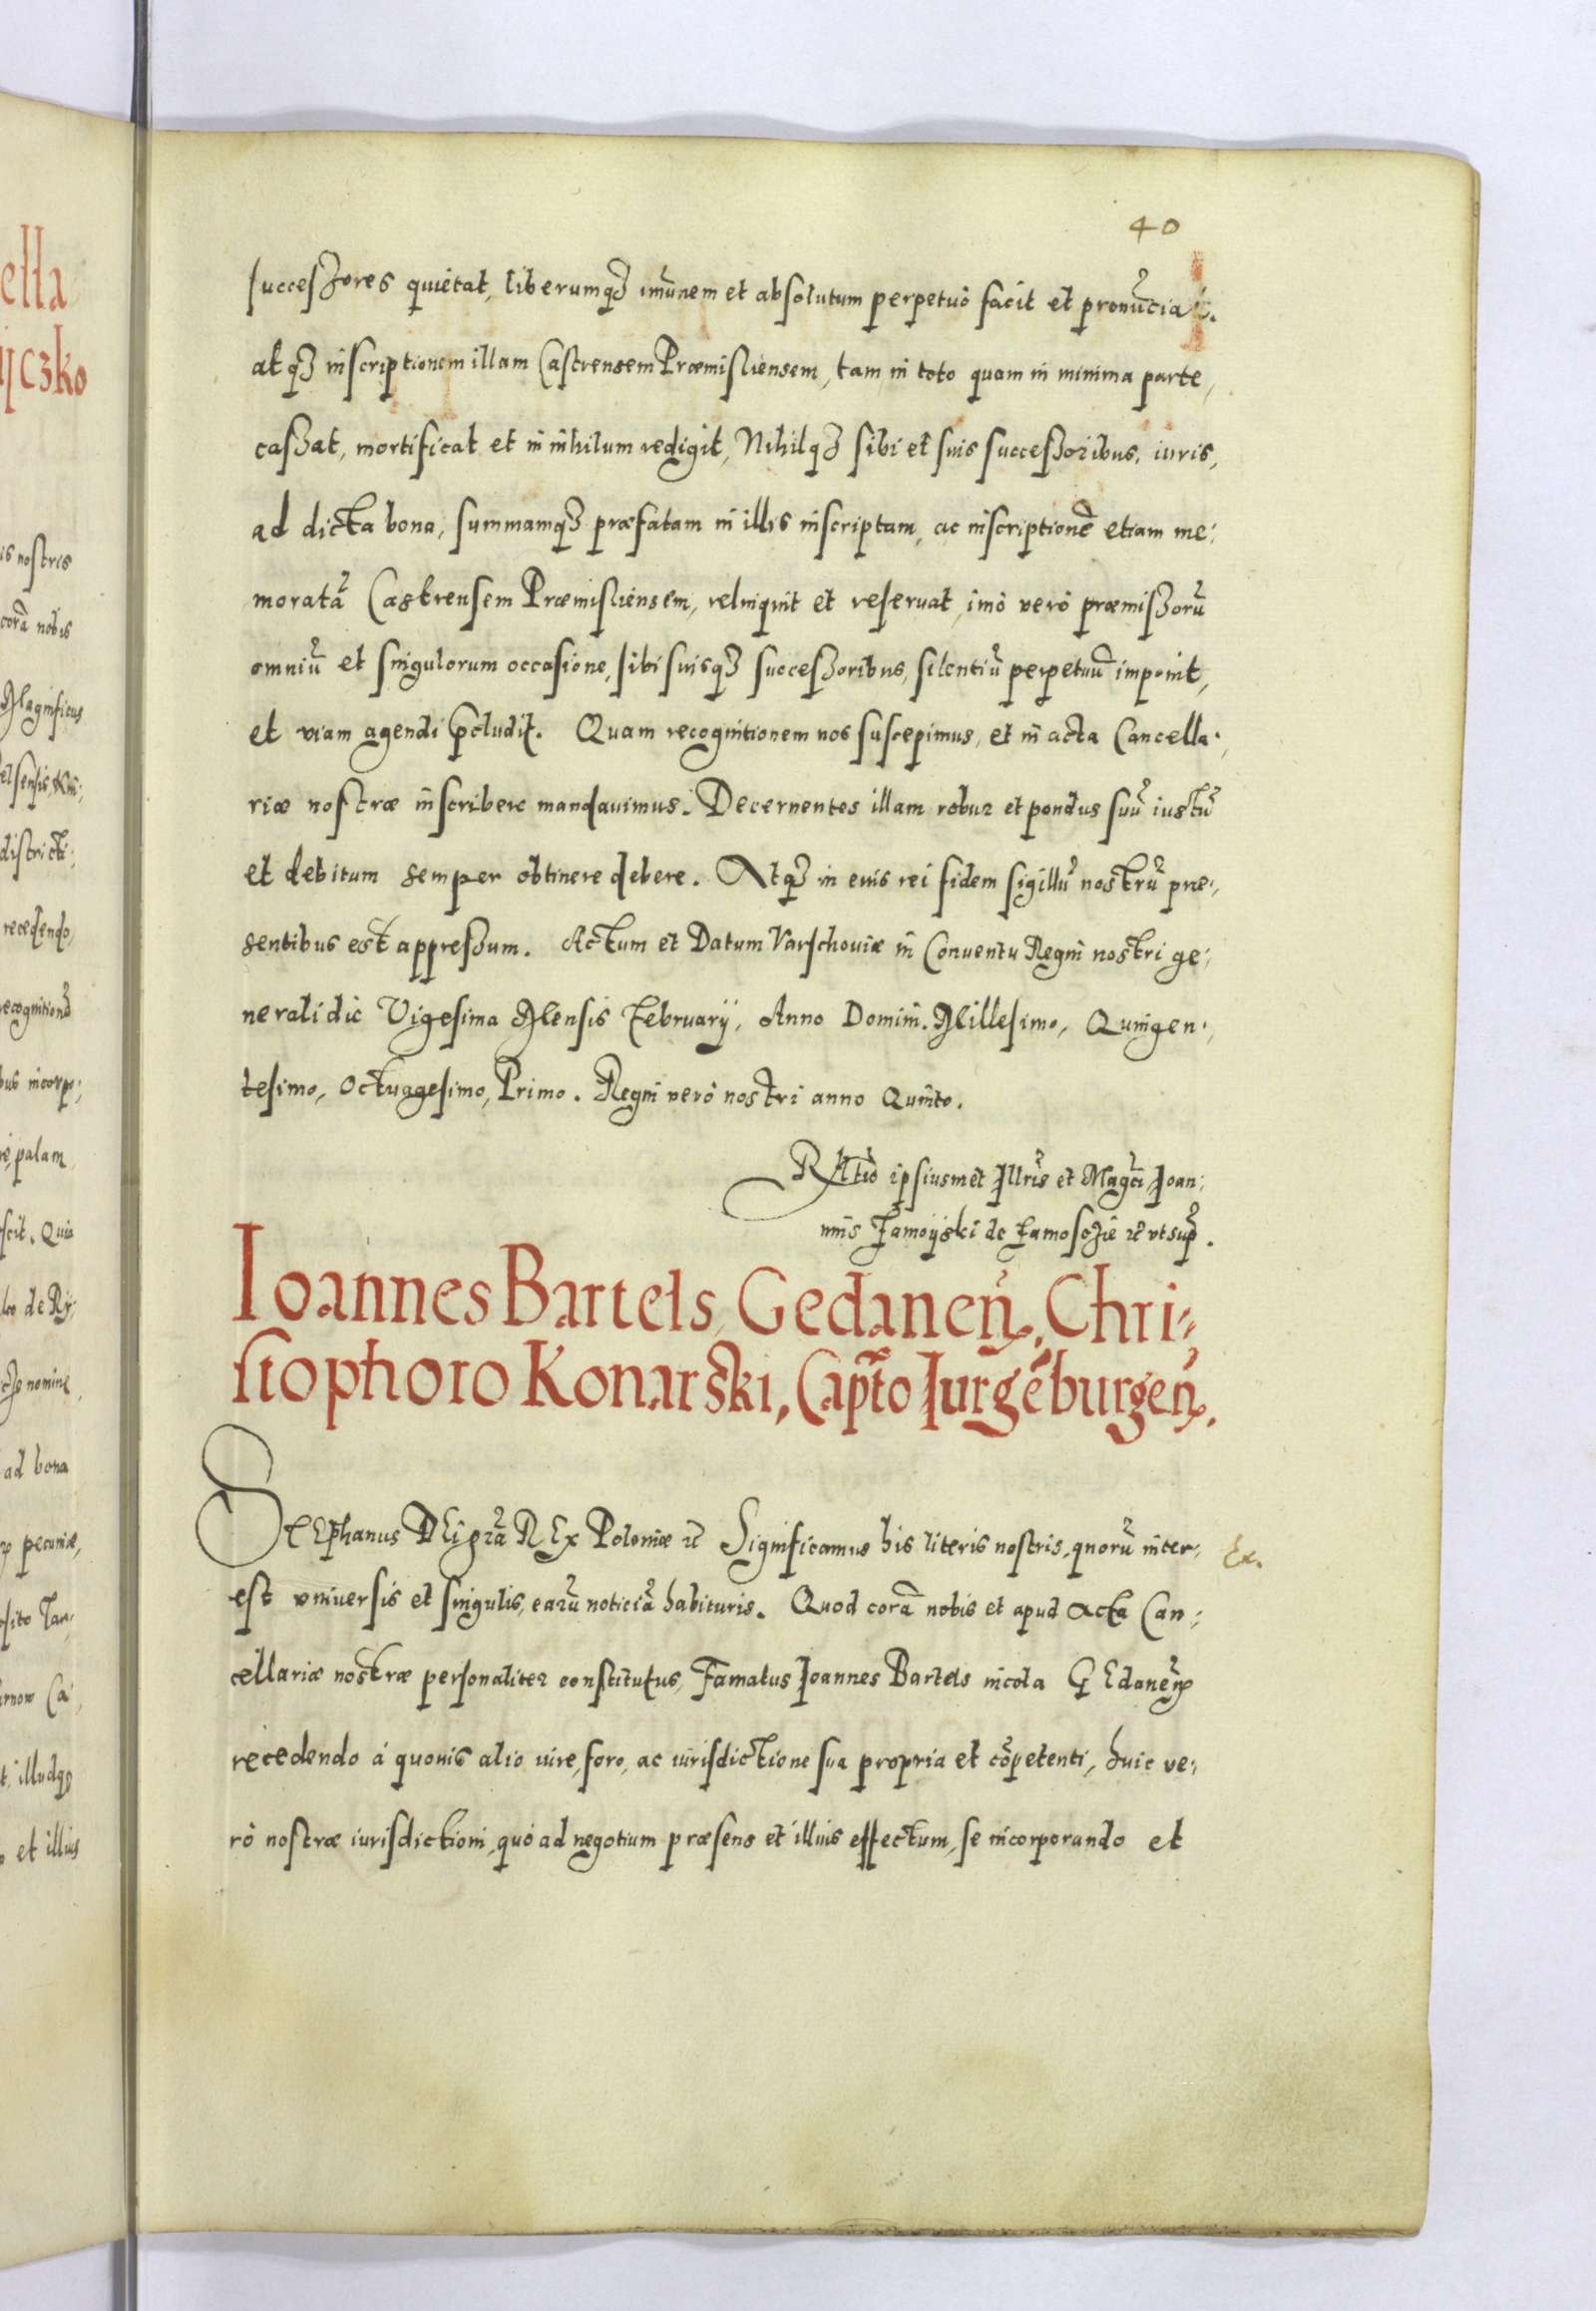 40
successores quietat, liberumq3 imũnem et absolutum perpetuò facit et pronũciat.
atq3 inscriptionem illam Castrensem Præmisliensem, tam in toto quam in minima parte,
cassat, mortificat et in nihilum redigit, Nihilq3 sibi et suis successoribus, iuris,
ad dicta bona, summamq3 præfatam in illis inscriptam, ac inscriptionẽ etiam me:
moratã Castrensem Præmisliensem, relinquit et reseruat, imò verò præmissorũ
omniũ et singulorum occasione, sibi suisq3 successoribus, silentiũ perpetuũ imponit,
et viam agendi p̃cludit. Quam recognitionem nos suscepimus, et in acta Cancella:
riæ nostræ inscribere mandauimus. Decernentes illam robur et pondus suũ iustũ
et debitum semper obtinere debere. Atq3 in euis rei fidem sigillũ nostrũ præ:
sentibus est appressum. Actum et Datum Varschouiæ in Conuentu Regni nostri ge:
nerali die Vigesima Mensis February, Anno Domini. Millesimo, Quingen:
tesimo, Octuagesimo, Primo. Regni verò nostri anno Quinto.
Rltio ipsiusmet Illris et Magci Joan:
nis Zamoyski de Zamosczie ꝛc vt sup.
Ioannes Bartels, Gedaneñ, Chri:
stophoro Konarski, Capto Iurgẽburgeñ.
Stephanus DEi gra REx Poloniæ ꝛc Significamus his literis nostris, quorũ inter:
Ex.
est vniuersis et singulis, earũ noticiã habituris. Quod corã nobis et apud Acta Can:
cellariæ nostræ personaliter constitutus, Famatus Joannes Bartels incola GEdaneñ
recedendo á quouis alio iure, foro, ac iurisdictione sua propria et cõpetenti, huic ve:
rò nostræ iurisdictioni, quò ad negotium præsens et illius effectum, se incorporando et